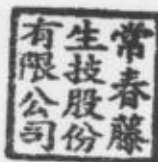 常春藤
生技股份
有限公司